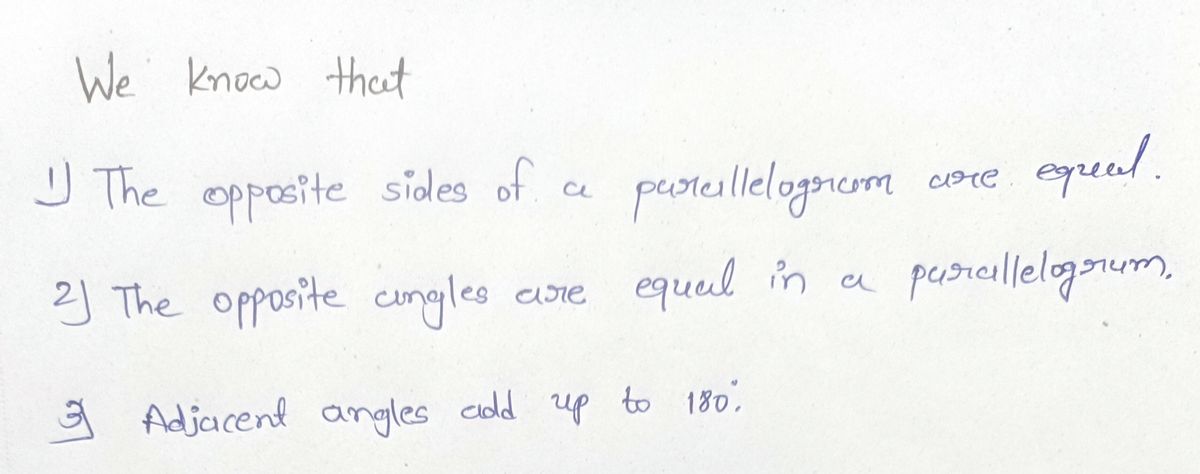 We know that
1) The opposite sides of a parallelogram are equal.
2) The opposite angles are equal in a parallelogram.
3) Adjacent angles add up to 180°.